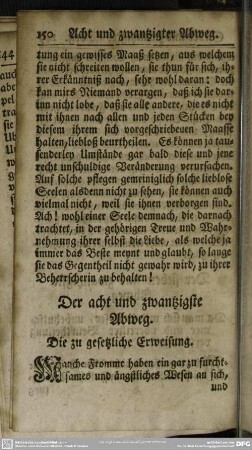 150 Acht und zwantzigter Abweg.
tung ein gewisses Maaß setzen, aus welchem
sie nicht schreiten wollen, sie thun für sich, ih-
rer Erkänntniß nach, sehr wohl daran: doch
kan mirs Niemand verargen, daß ich sie dar-
inn nicht lobe, daß sie alle andere, die es nicht
mit ihnen nach allen und jeden Stücken bey
diesem ihrem sich vorgeschriebenen Maasse
halten, liebloß beurtheilen. Es können ja tau-
senderley Umstände gar bald diese und jene
recht unschuldige Veränderung verursachen.
Auf solche pflegen gemeiniglich solche lieblose
Seelen alsdenn nicht zu sehen, sie können auch
vielmal nicht, weil sie ihnen verborgen sind.
Ach! wohl einer Seele demnach, die darnach
trachtet, in der gehörigen Treue und Wahr-
nehmung ihrer selbst die Liebe, als welche ja
immer das Beste meynt und glaubt, so lange
sie das Gegentheil nicht gewahr wird, zu ihrer
Beherrscherin zu behalten!
Der acht und zwantzigste
Abweg.
Die zu gesetzliche Erweisung.
Manche Fromme haben ein gar zu furcht-
sames und ängstliches Wesen an sich,
und